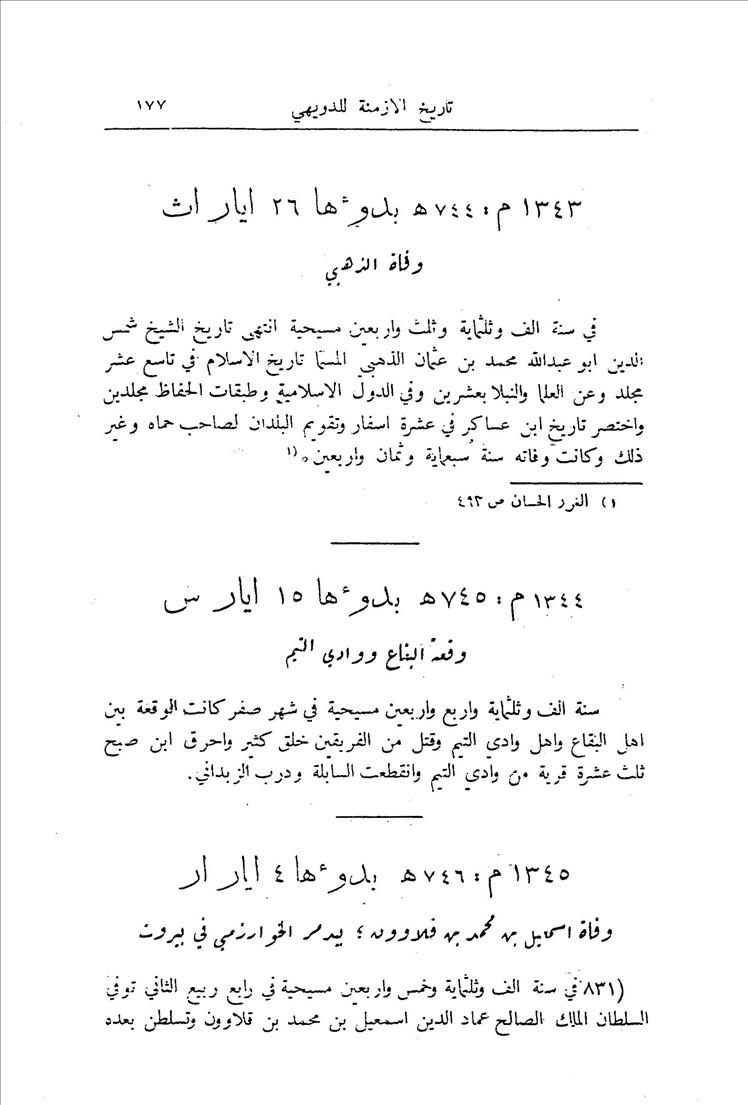 تاريخ الازمنة للدويهي ١٧٧
١٣٤٣ م : ٧٤٤ هـ بدوءها ٢٦ ايار اث
وفاة الذهبي
في سنة الف وثلثماية وثلث واربعين مسيحية انتهى تاريخ الشيخ شمس
الدين ابو عبدالله محمد بن عثمان الذهبي المسما تاريخ الاسلام في تاسع عشر
مجلد وعن العلما والنبلا بعشرين وفي الدول الاسلامية وطبقات الحفاظ مجلدين
واختصر تاريخ ابن عساكر في عشرة اسفار وتقويم البلدان لصاحب حماه وغير
ذلك وكانت وفاته سنة سبعماية وثمان واربعين . (١
١) الغرر الحسان ص ٤٩٣
١٣٤٤ م : ٧٤٥ هـ بدوءها ١٥ ايار س
وقعة البقاع ووادي التيم
سنة الف وثلثماية واربع واربعين مسيحية في شهر صفر كانت الوقعة بين
اهل البقاع واهل وادي التيم وقتل من الفريقين خلق كثير واحرق ابن صبح
ثلث عشرة قرية من وادي التيم وانقطعت السابلة ودرب الزبداني .
١٣٤٥ م : ٧٤٦ هـ بدوءها ٤ ايار ار
وفاة اسمعيل بن محمد بن قلاوون ؛ يدمر الخوارزمي في بيروت
(٨٣١ في سنة الف وثلثماية وخمس واربعين مسيحية في رابع ربيع الثاني توفي
السلطان الملك الصالح عماد الدين اسمعيل بن محمد بن قلاوون وتسلطن بعده